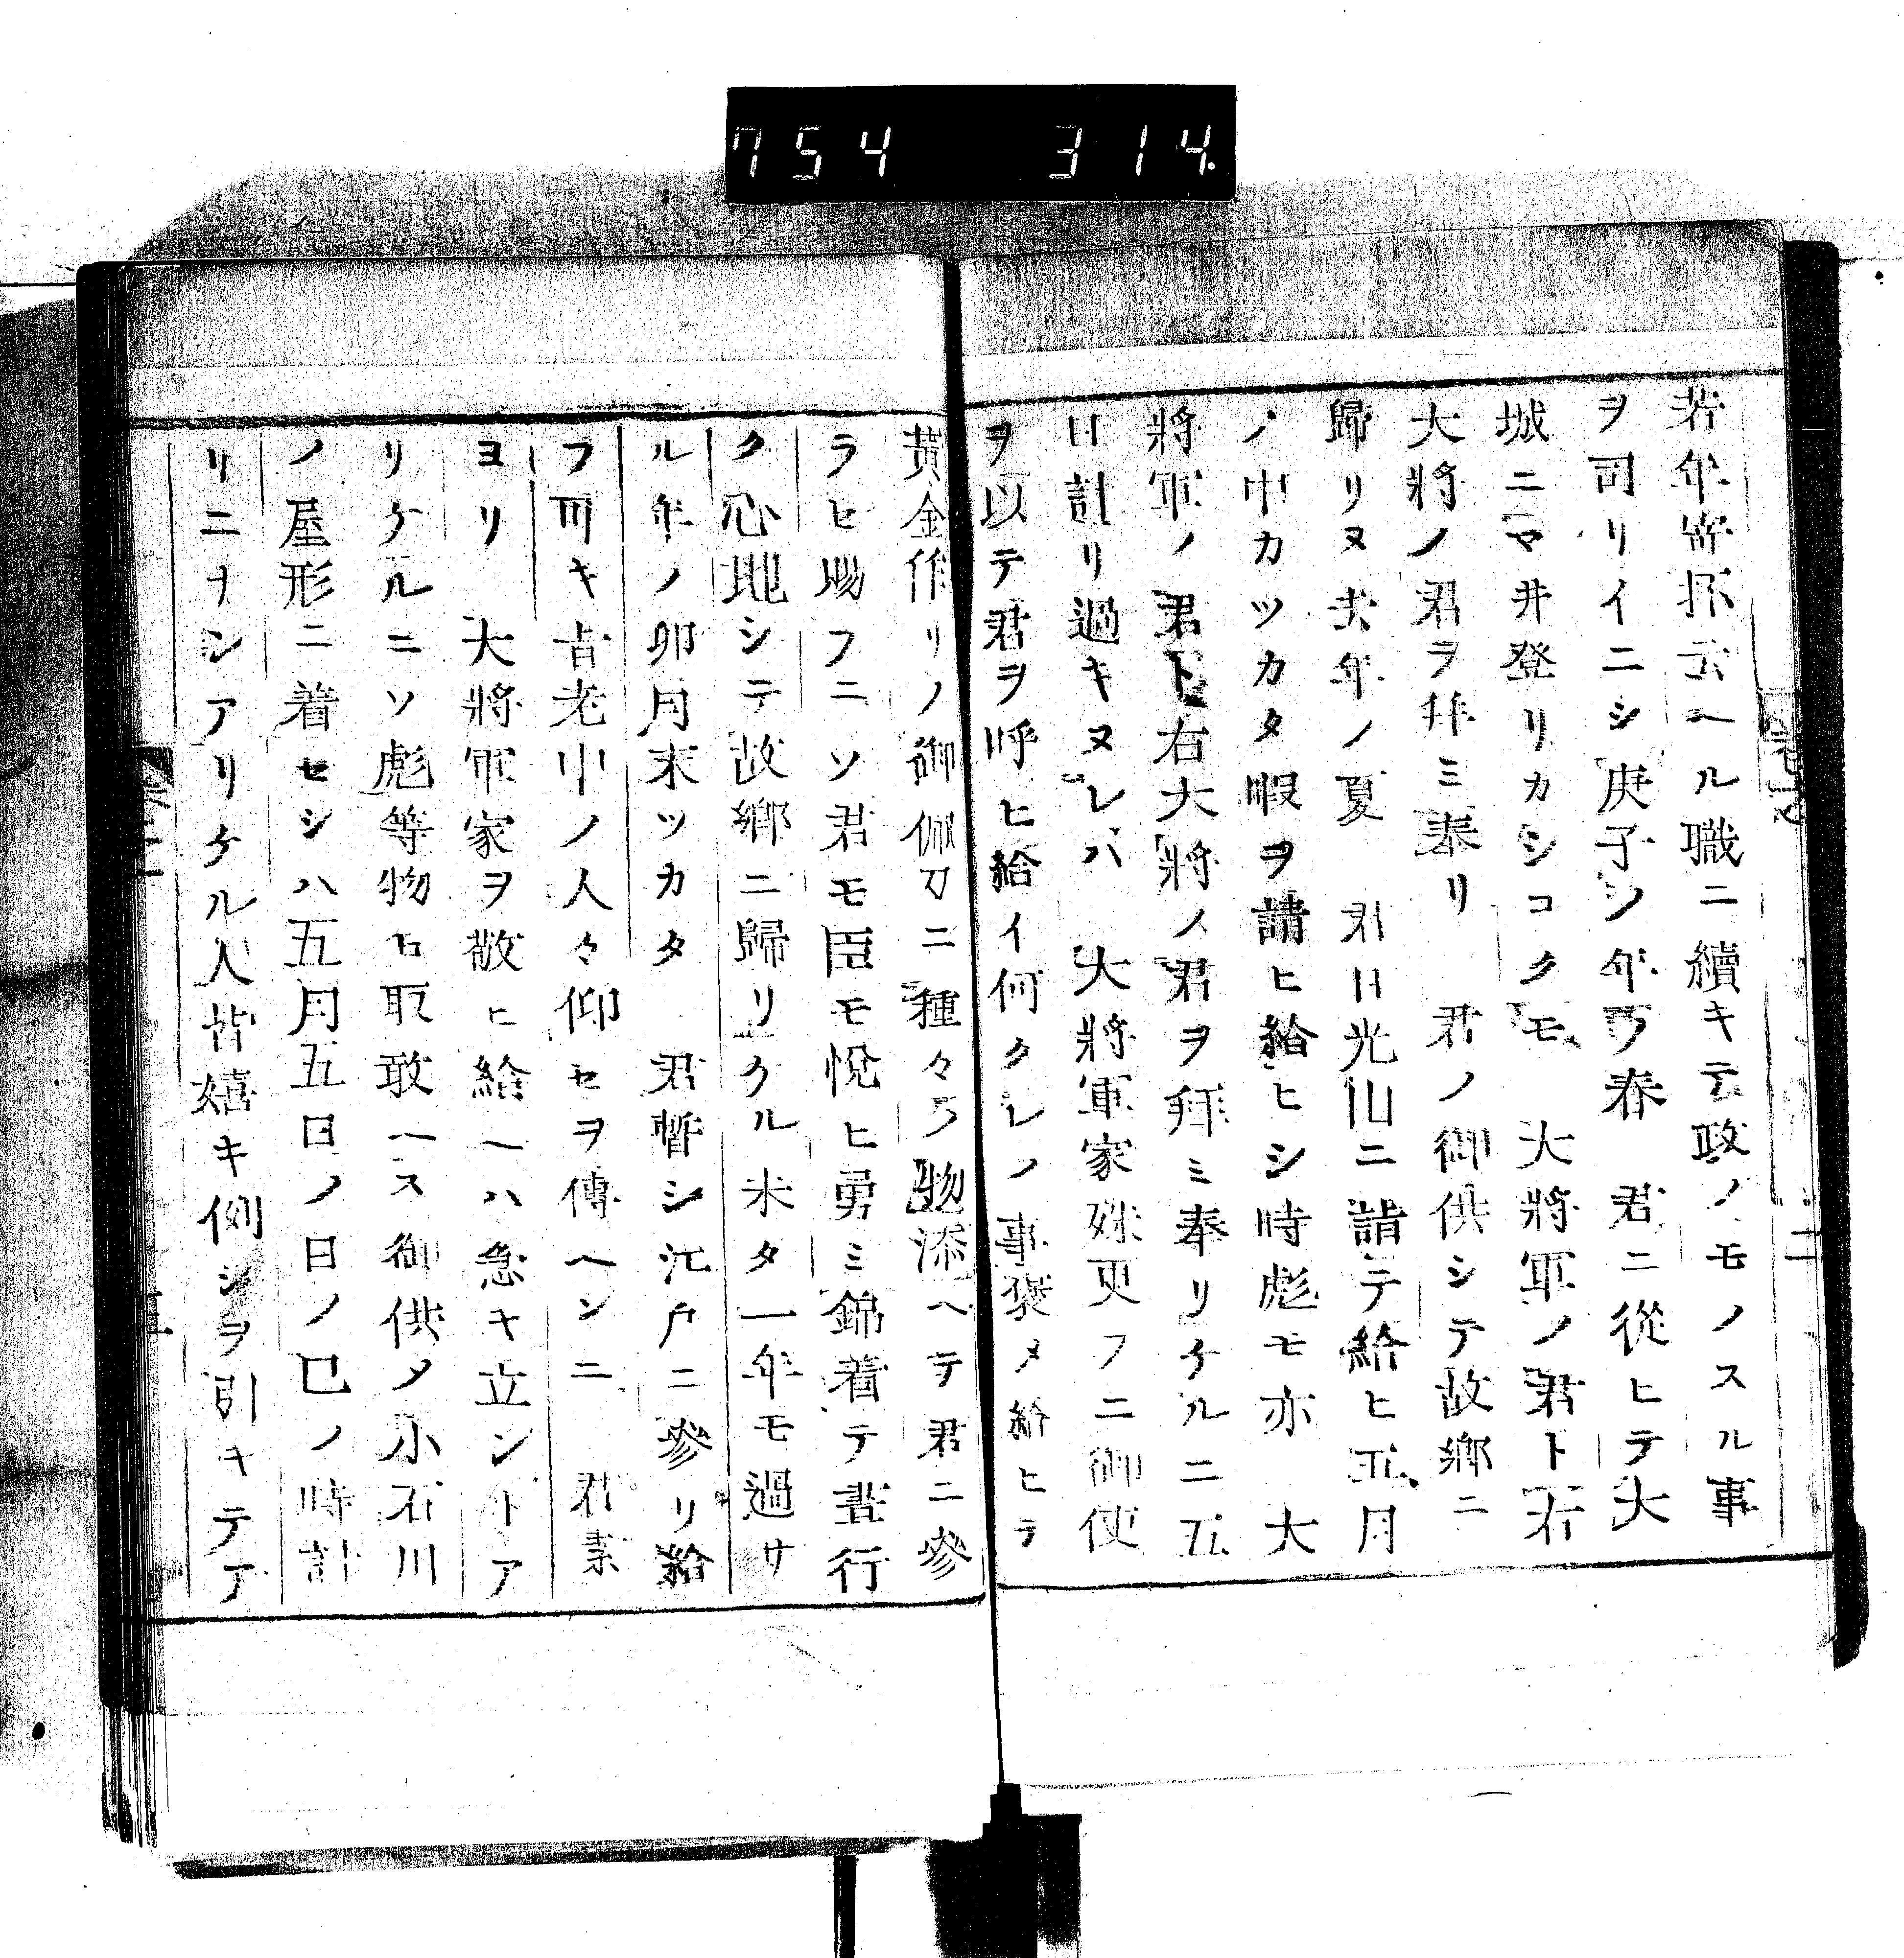 754 314
若年寄抔云ヘル職ニ續キテ政ノモノスル事
ヲ司リイニシ庚子ノ年ノ春 君ニ從ヒテ大
城ニマ井登リカシコクモ 大將軍ノ君ト右
大將ノ君ヲ拜ミ奉リ 君ノ御供シテ故郷ニ
歸リヌ夫年ノ夏 君日光山ニ詣テ給ヒ五月
ノ中カツカタ暇ヲ請ヒ給ヒシ時彪モ亦 大
將軍ノ君ト右大將ノ君ヲ拜ミ奉リケルニ五
日計リ過キヌレバ 大將軍家殊更フニ御使
ヲ以テ君ヲ呼ヒ給イ何クレノ事褒メ給ヒテ
黄金作リノ御佩刀ニ種々ノ物添ヘテ君ニ參
ラヒ賜フニソ君モ臣モ悅ヒ勇ミ錦着テ晝行
ク心地シテ故郷ニ歸リクル未タ一年モ過サ
ル年ノ卯月末ツカタ 君暫シ江戸ニ參リ給
フ可キ旨老中ノ人々仰セヲ傳ヘンニ 君素
ヨリ 大將軍家ヲ敬ヒ給ヘハ急キ立ントア
リケルニソ彪等物モ取敢ヘス御供メ小石川
ノ屋形ニ着セシハ五月五日ノ日ノ巳ノ時計
リニナンアリケル人皆嬉キ例シヲ引キテア